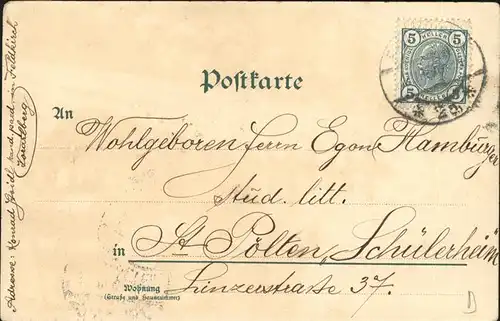 Postkarte
5 5
HELLER
5 5
HELLER
An
Wohlgeboren Herrn Egon Hamburger
stud. litt.
in St Pölten „Schülerheim"
Wohnung
(Straße und Hausnummer)
Linzerstrasse 37.
Adresse: Konrad cand. paed. in Feldkirch
Vorarlberg
D